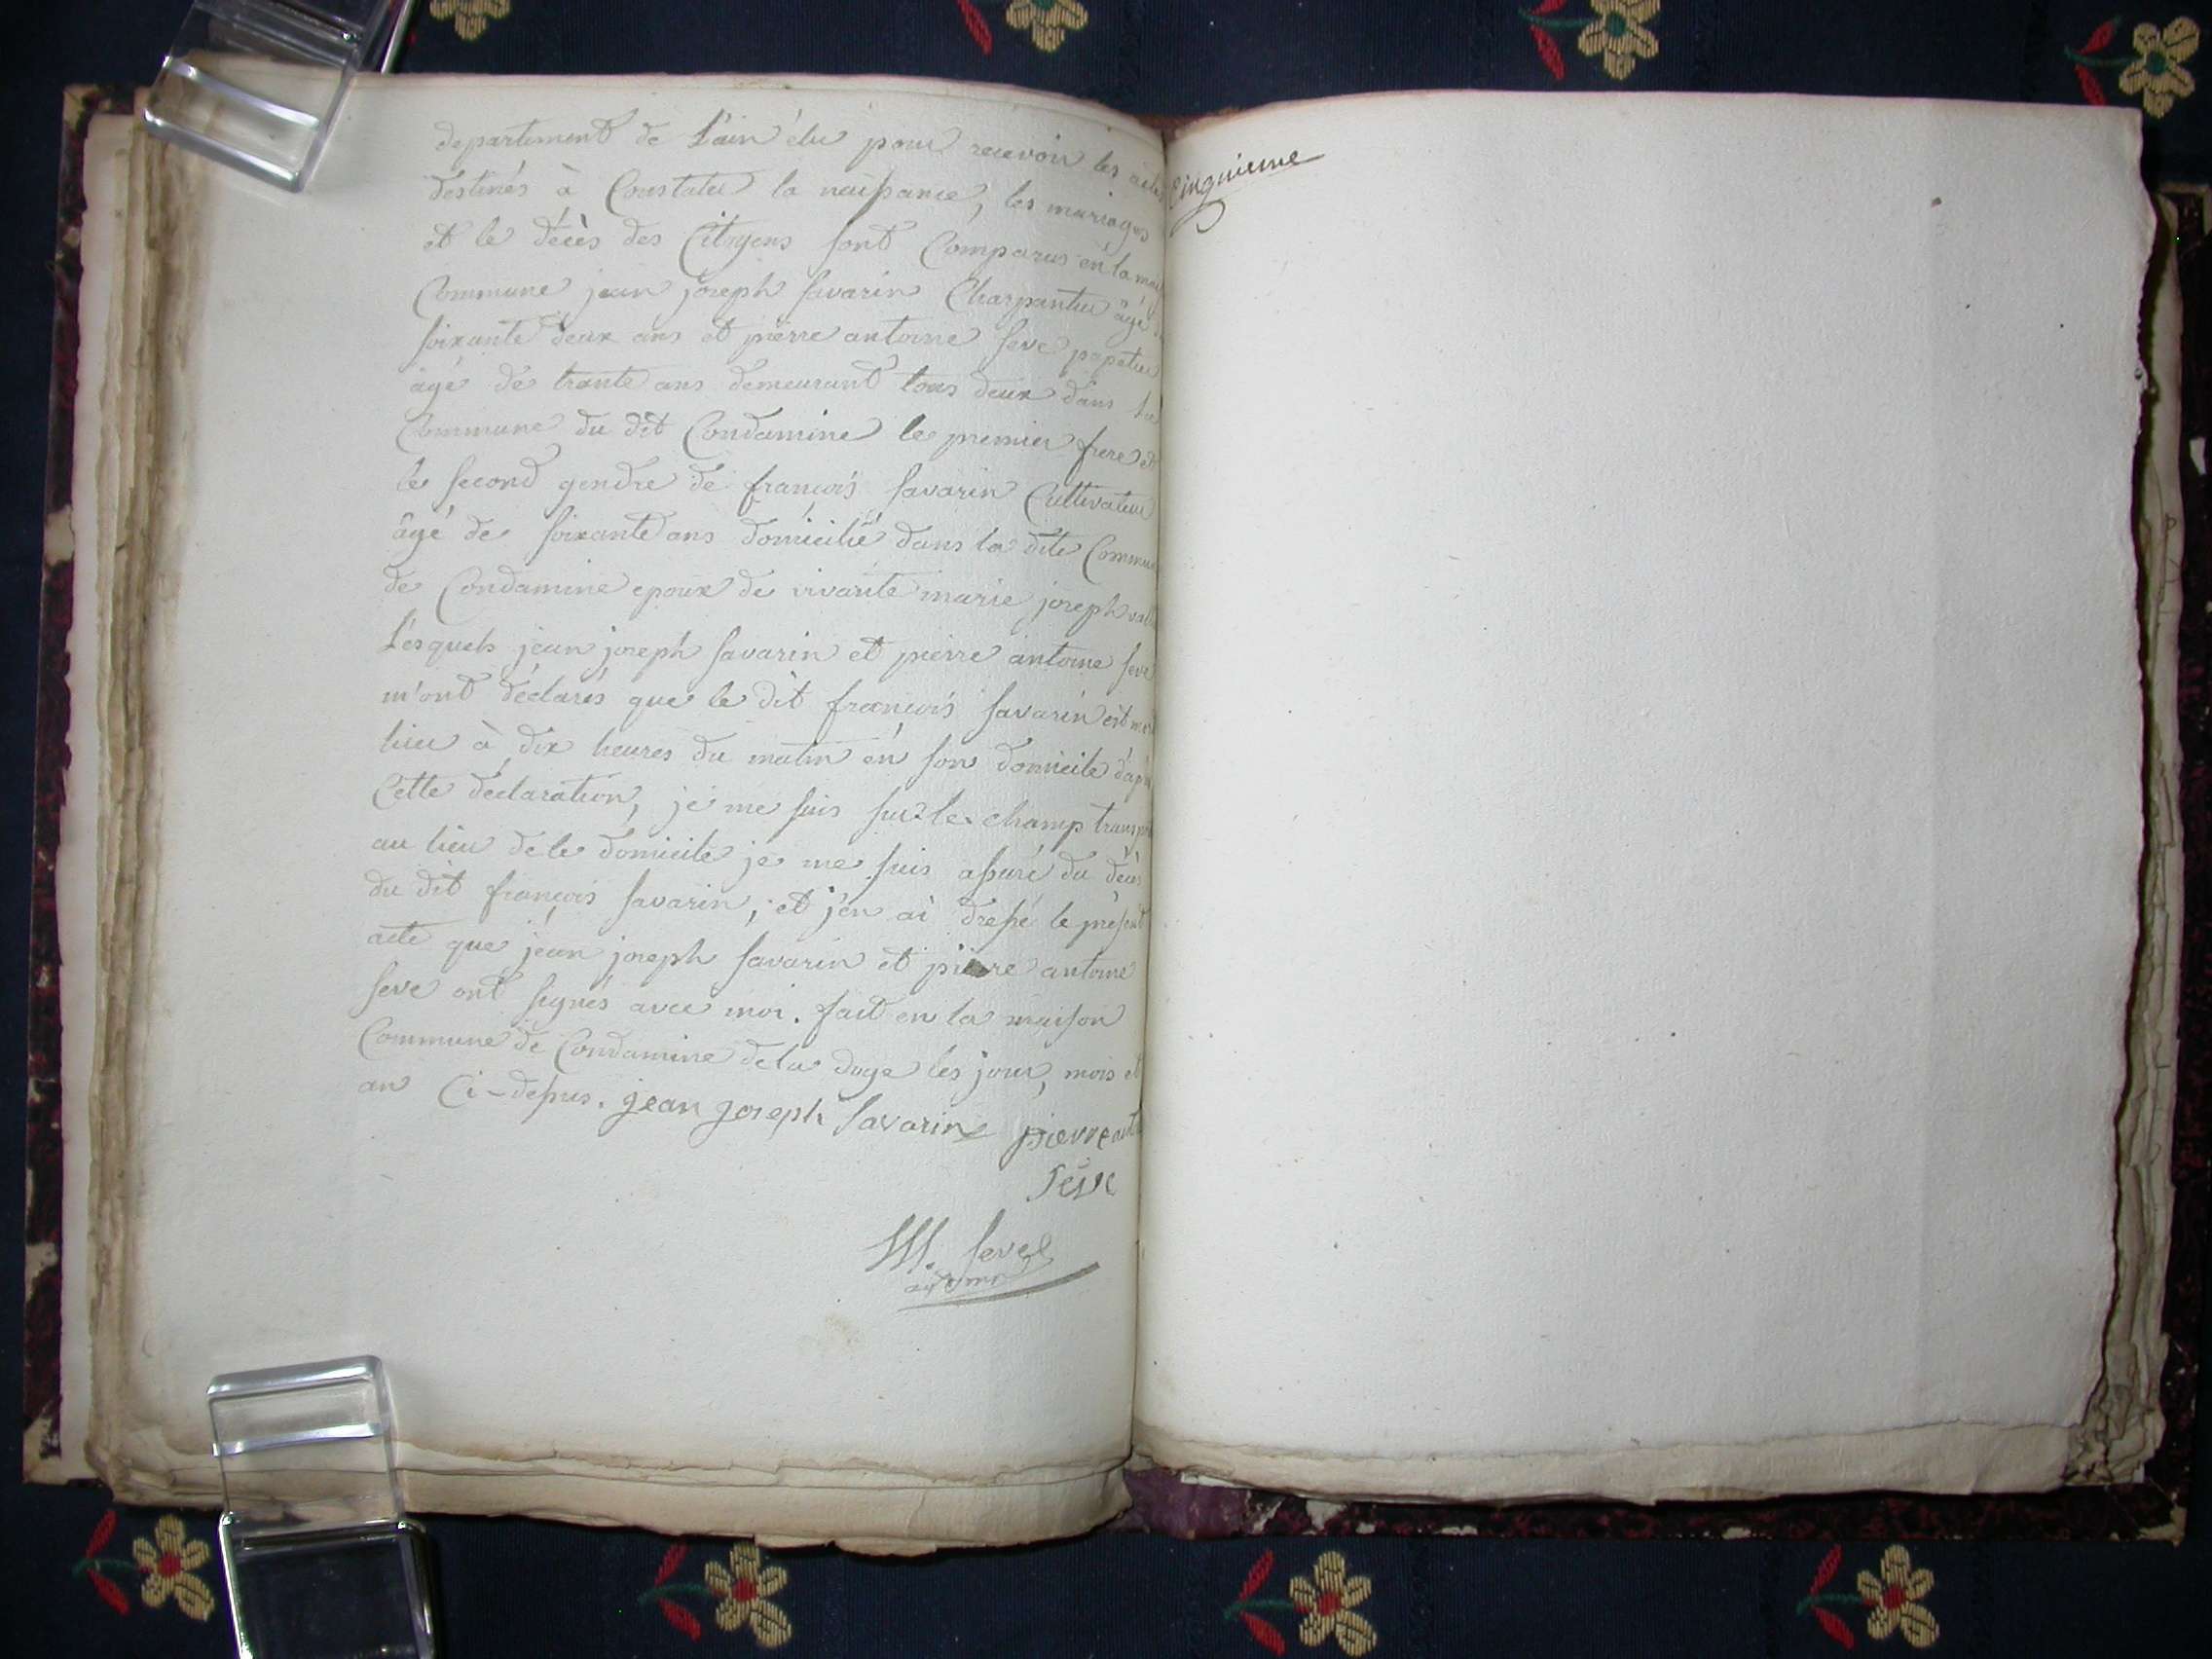 departement de L'ain élu pour recevoir les actes
destinés à Constater la naissance, les mariages
et le décès des Citoyens sont Comparus en la
Commune jean joseph Savarin Charpentier âgé
soixante deux ans et pierre antoine Seve papetier
âgé de trante ans demeurant tous deux dans la
Commune du dit Condamine le premier frere et
le second gendre de françois Savarin Cultivateur
âgé de soixante ans domicilié dans la dite Commu
de Condamine epoux de vivante marie joseph
Lesquels jean joseph Savarin et pierre antoine Seve
m'ont déclarés que le dit françois Savarin est
hier à dix heures du matin en son domicile d'ap
Cette déclaration, je me suis sur le champ transp
au lieu de le domicile je me suis assuré du décès
du dit françois Savarin, et j'en ai dressé le présent
acte que jean joseph Savarin et pierre antoine
Seve ont signés avec moi. fait en la maison
Commune de Condamine de la doye les jour, mois et
an Ci-dessus. jean joseph Savarin pierre ant
Seve
M. Seve
Cinquieme